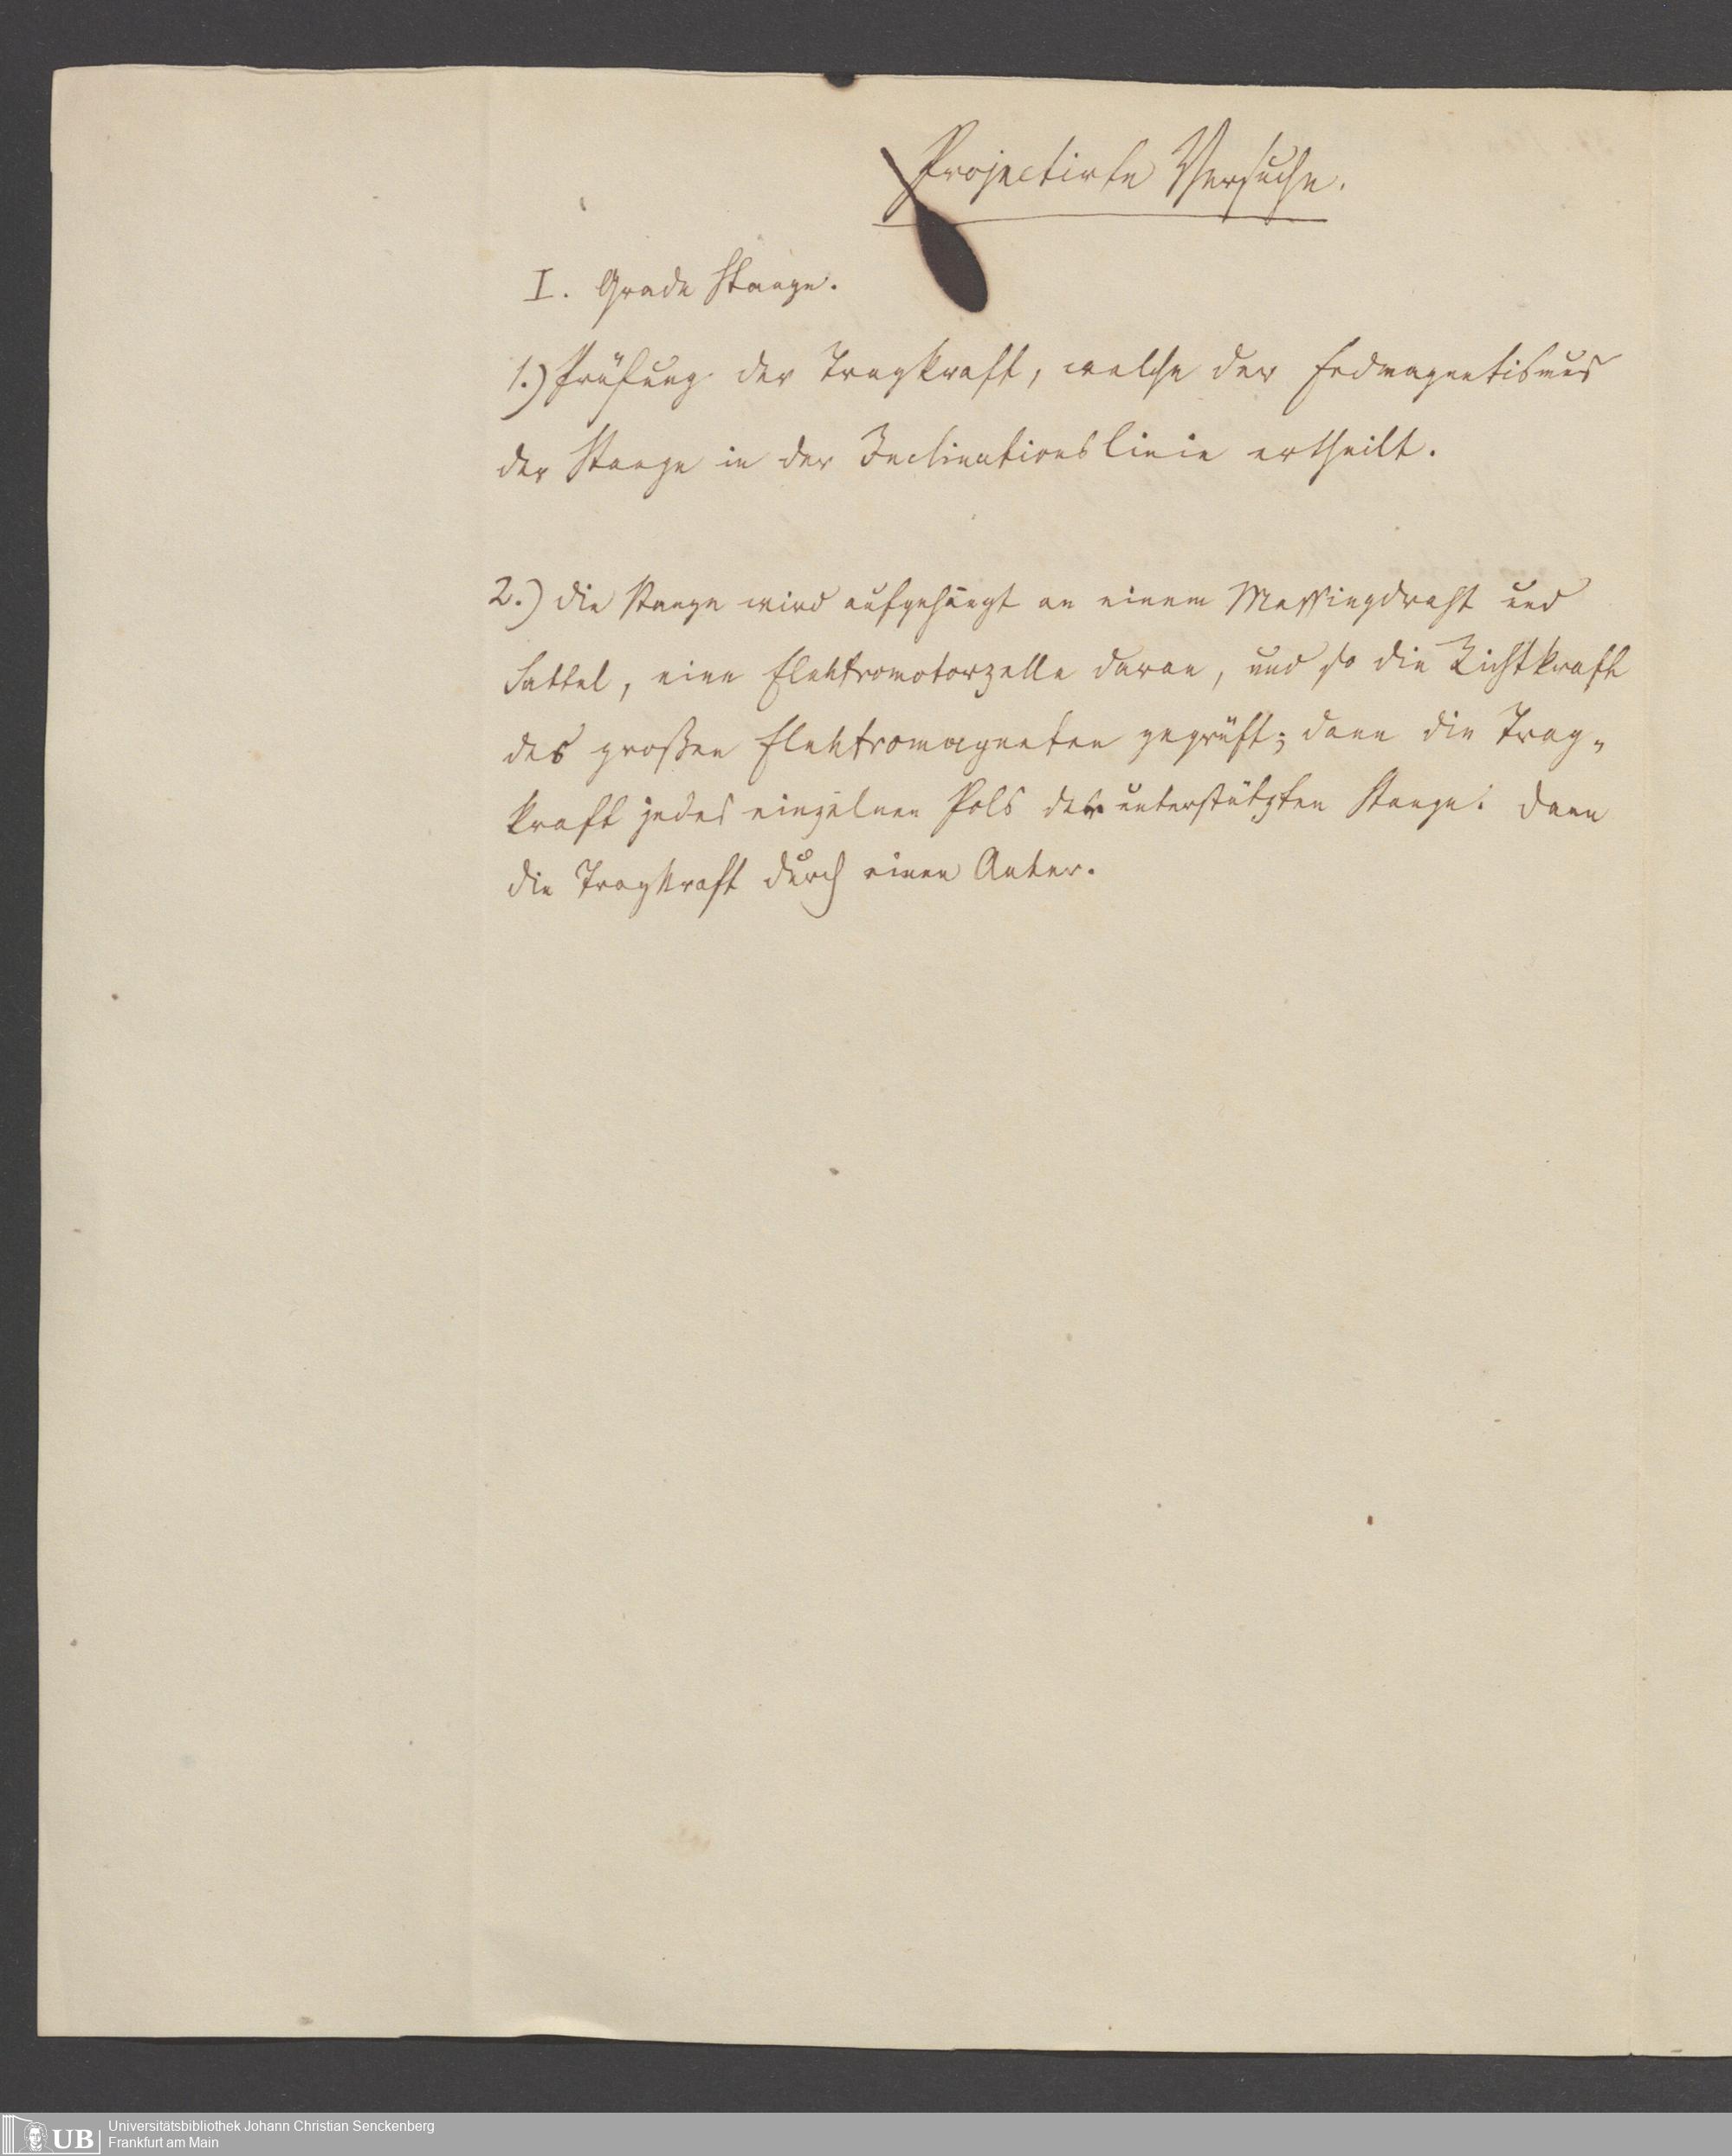 Projectirte Versuche.
I. Grade Stange.
1.) Prüfung der Tragkraft, welche der Erdmagnetismus
der Stange in der Inclinationslinie ertheilt.
2.) die Stange wird aufgehängt an einem Messingdraht und
Sattel, eine Elektromotorzelle daran, und so die Richtkraft
des großen Elektromagneten geprüft; dann die Trag-
kraft jedes einzelnen Pols der unterstützten Stange. dann
die Tragkraft durch einen Anker.
UB
Universitätsbibliothek Johann Christian Senckenberg
Frankfurt am Main